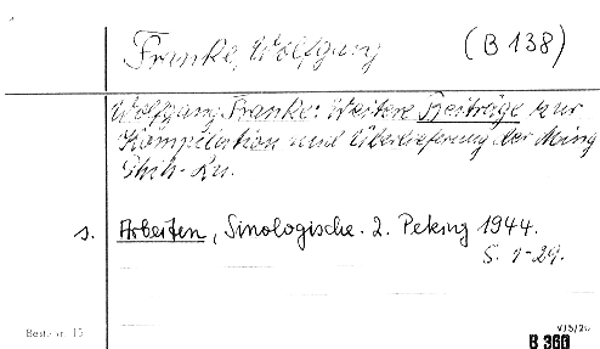 Franke, Wolfgang (B 138)
Wolfgang Franke: Weitere Beiträge zur
Kompilation und Überlieferung der Ming
Shih-Lu.
s. Arbeiten, Sinologische. 2. Peking 1944.
S. 1-29.
Best. Nr. 15
B 360